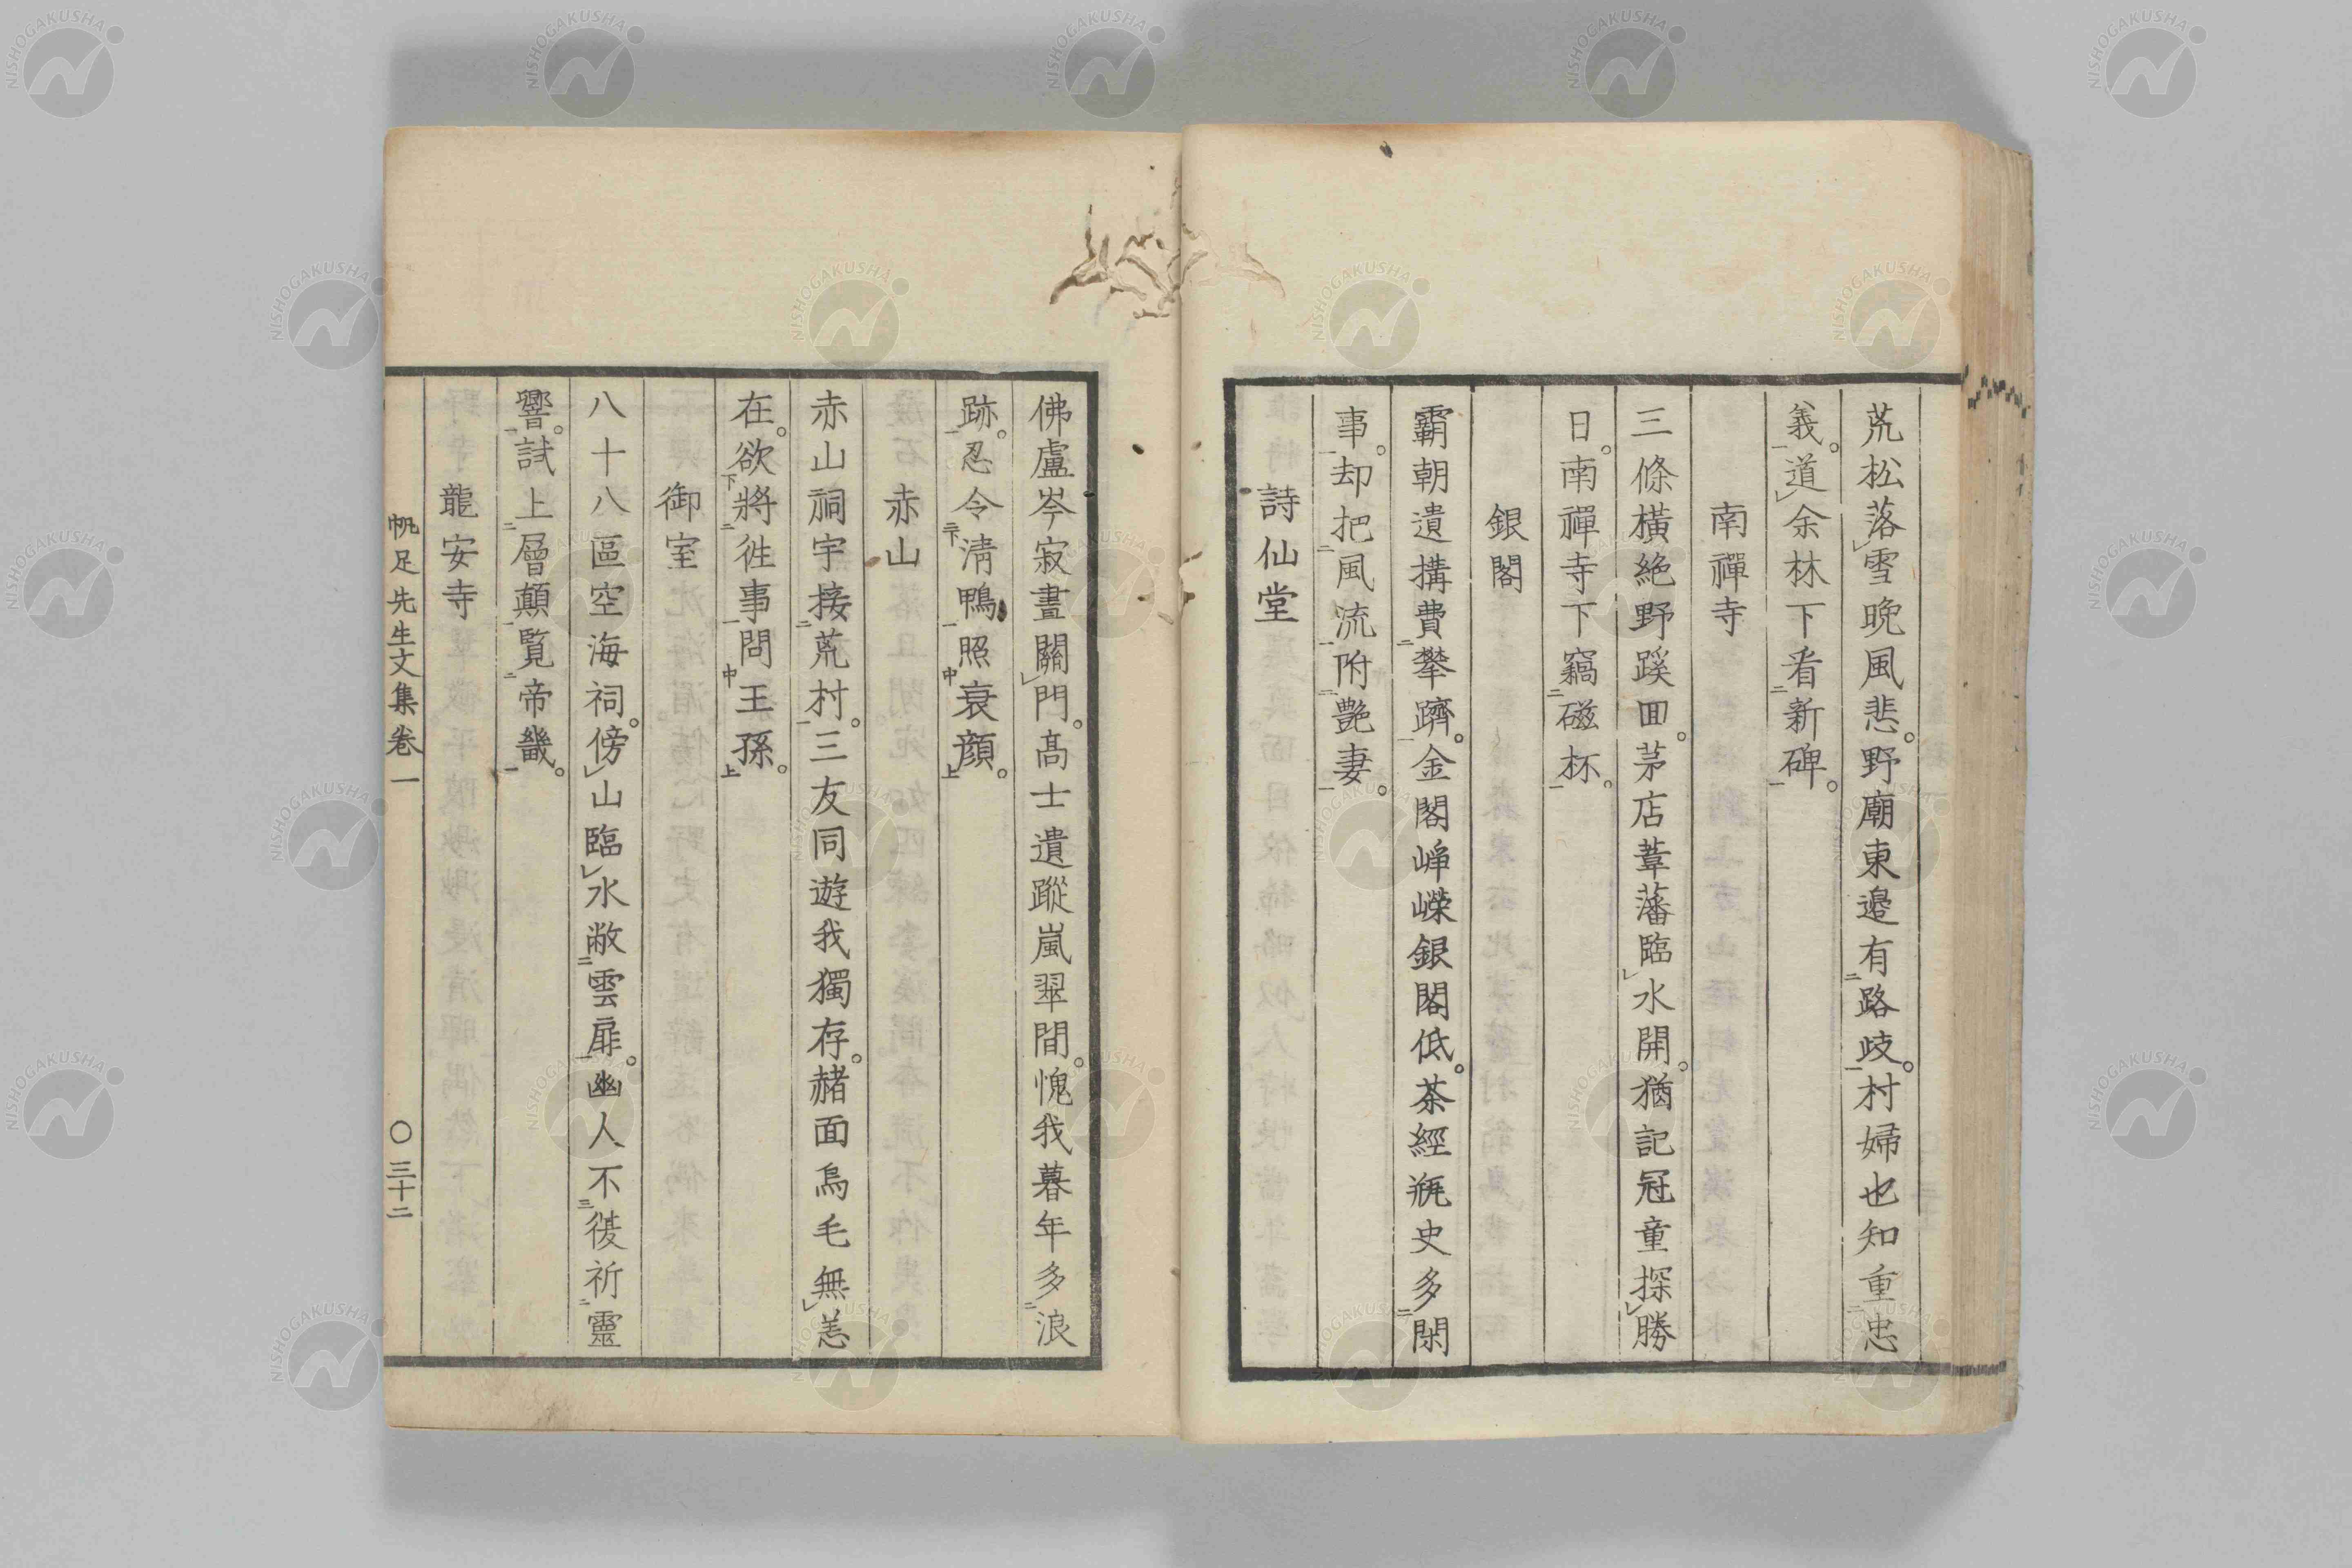 荒松落雪晩風悲。野廟東邉有路歧。村婦也知重忠
義。道余林下看新碑。
南禪寺
三條橫絶野蹊回。茅店葦藩臨水開。猶記冠童探勝
日。南禪寺下竊磁杯。
銀閣
霸朝遺搆費攀躋。金閣崢嶸銀閣低。茶經瓶史多閑
事。却把風流附艶妻。
詩仙堂
佛盧岑寂晝關門。髙士遺蹤嵐翠間。愧我暮年多浪
跡。忍令淸鴨照衰顔。
赤山
赤山祠宇接荒村。三友同遊我獨存。赭面烏毛無恙
在。欲將徃事問王孫。
御室
八十八區空海祠。傍山臨水敞雲扉。幽人不復祈靈
響。試上層顛覧帝畿。
龍安寺
帆足先生文集卷一 〇三十二
NISHOGAKUSHA